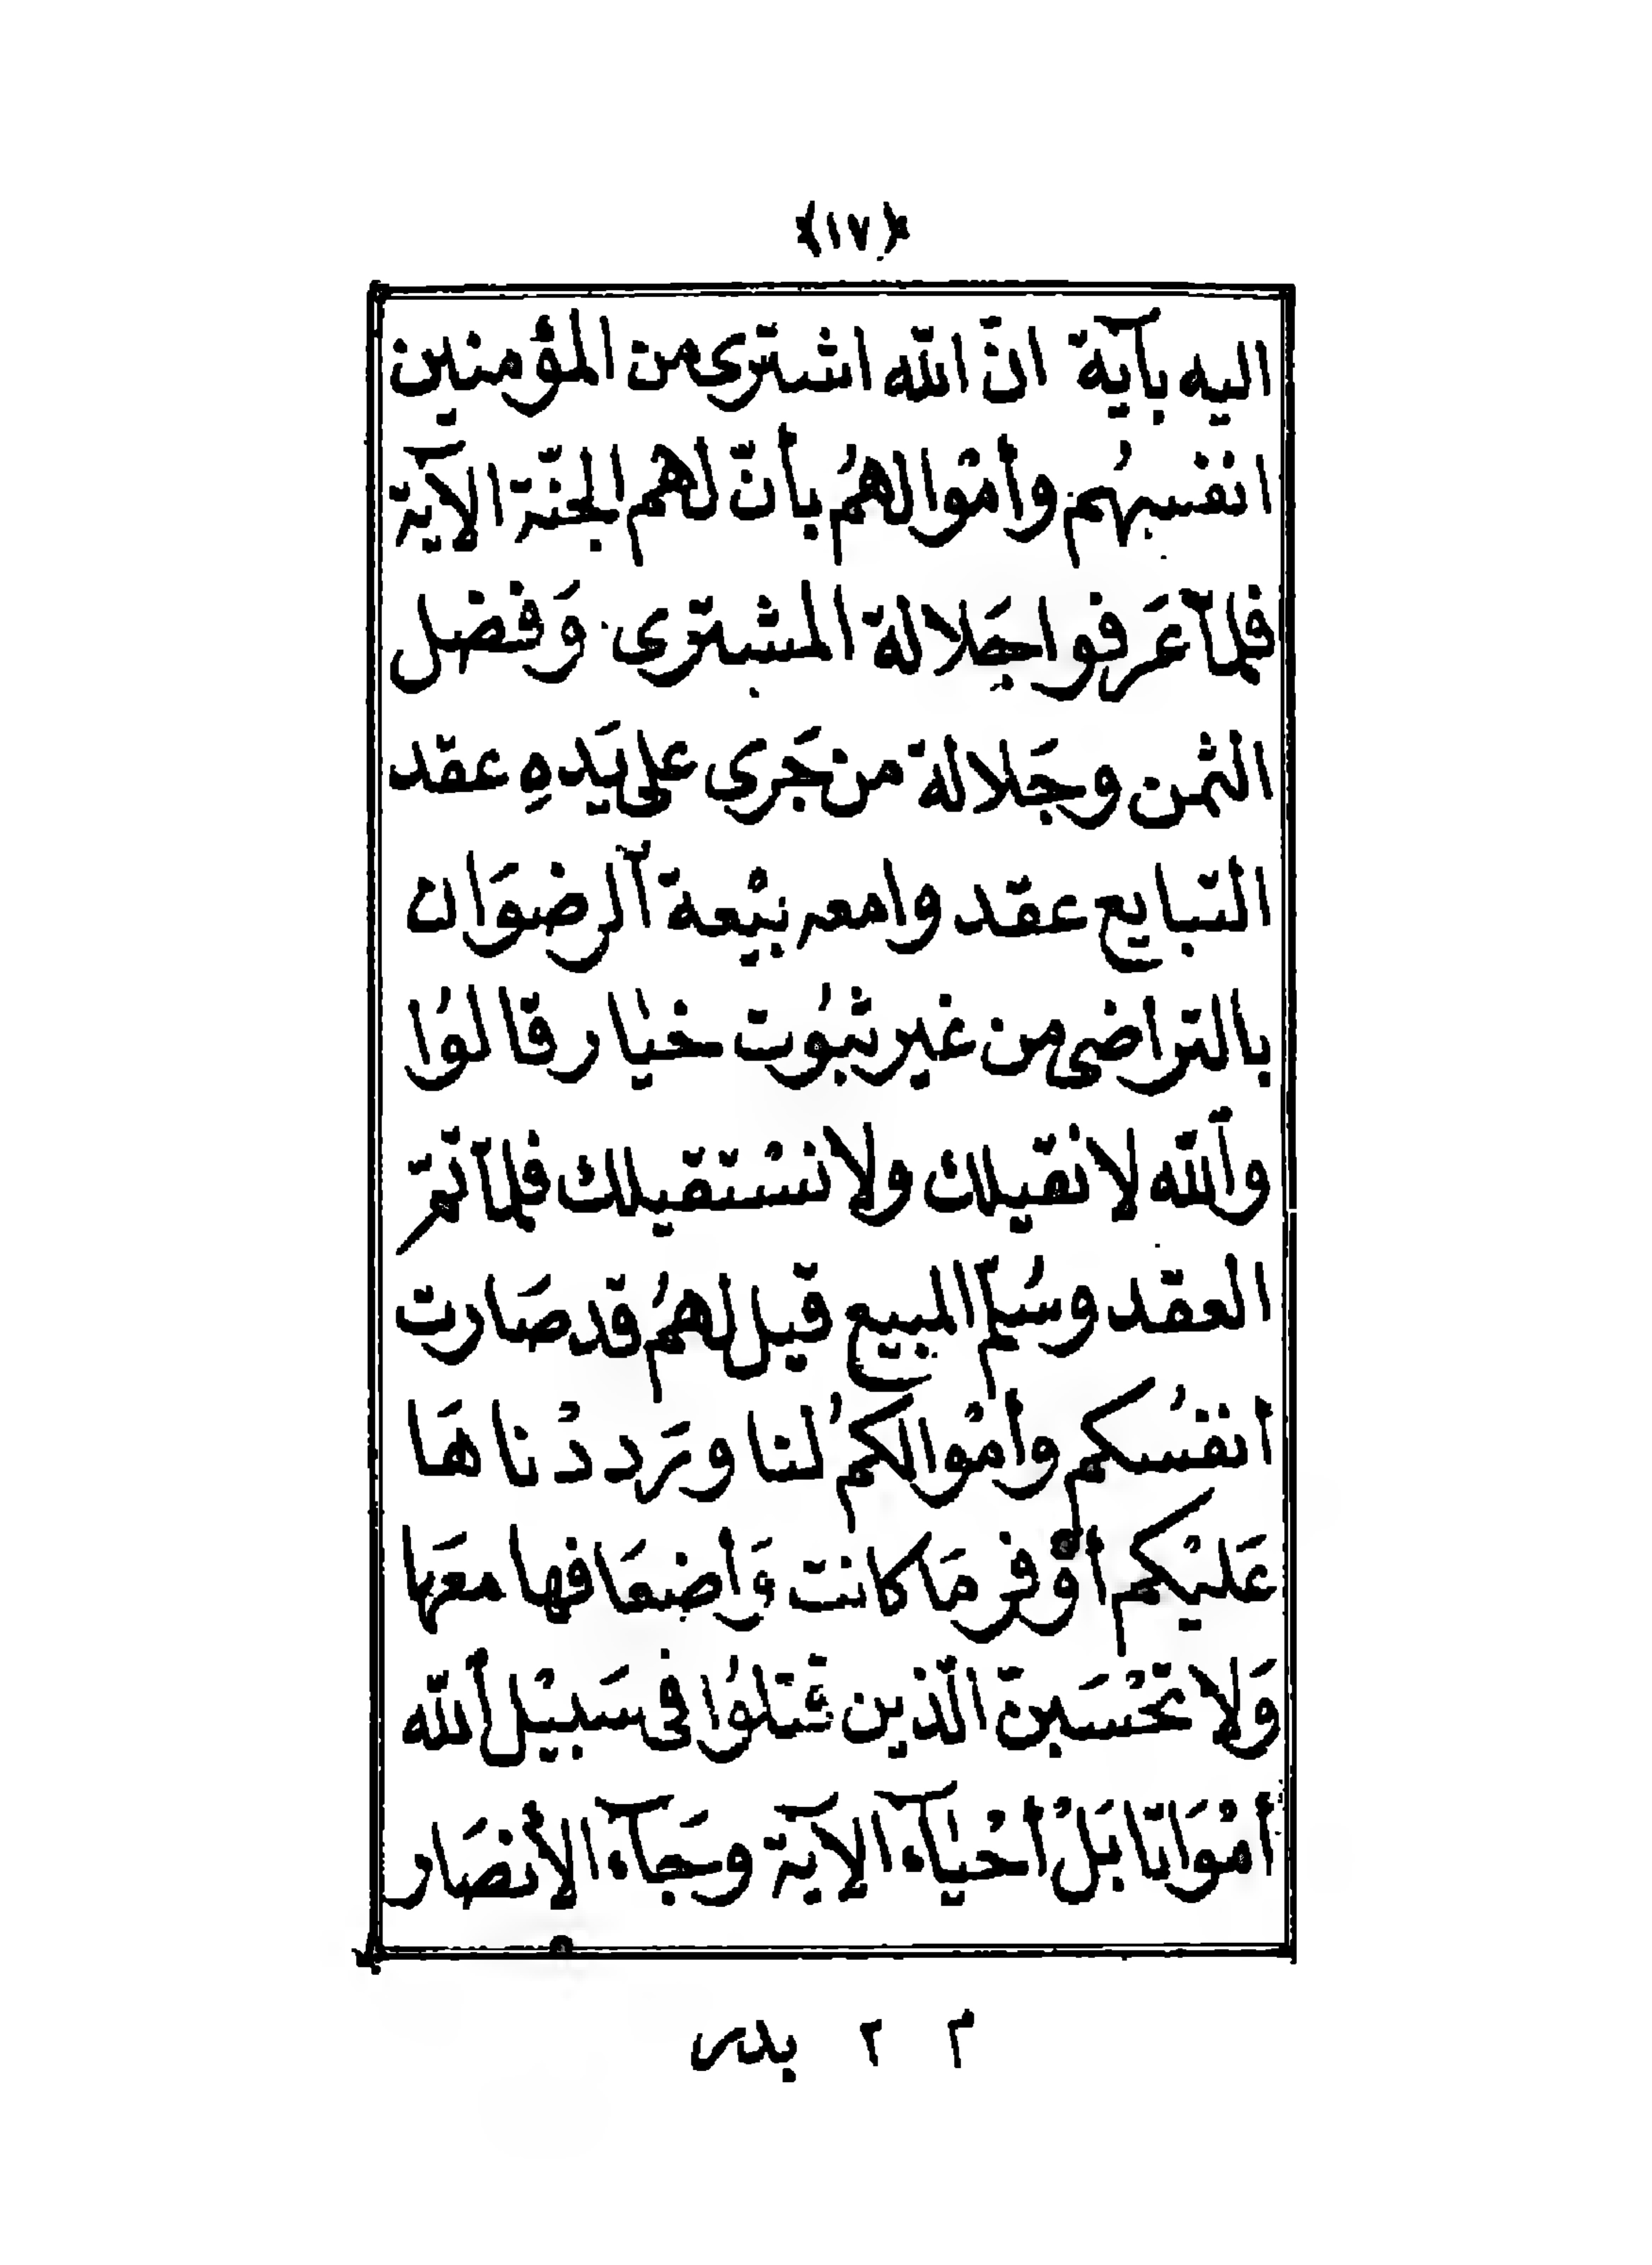 ﴿١٧﴾
اليه بآية انّ الله اشترى من المؤمنين
انفسهُم وأمْوالهُم بأنّ لهم الجنّة الآية
فلمّا عَرفوا جَلالة المشترى وَفضل
الثمن وجَلالة من جَرى على يَدهِ عقد
التبايع عقد وامعه بيْعة ٱلرضوَان
بالتراضى من غير ثبُوت خيٰار قالوُا
وٱلله لانقيلك ولا نسْتقيلك فلمّا تمّ
العقد وسُلّم المبيع قيل لهمُ قد صَارت
أنفسُكم وأمْوالكمُ لنا ورَددْناهَا
عَليْكم أوْفر مَا كانت وَأضعَافها معَها
وَلا تحْسَبنّ الّذين قُتلوُا فى سَبيْل ٱلله
أمْوَاتا بَلْ أحْيٰآء الآية وجَآء الأنصَار
م ٢ بدر